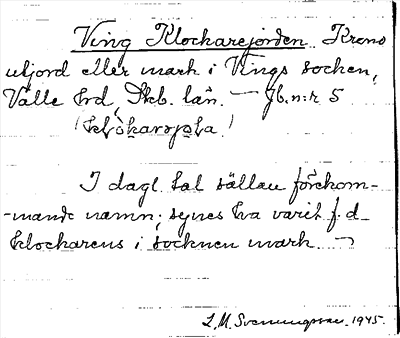 Ving Klockarejorden. Krono
utjord eller mark i Vings socken,
Valle hrd, Skb. län. — Jb.n:r 5
I dagl. tal sällan förekom-
-mande namn; synes ha varit f.d.
klockarens i socknen mark. —
L. M. Svenungsson. 1945.